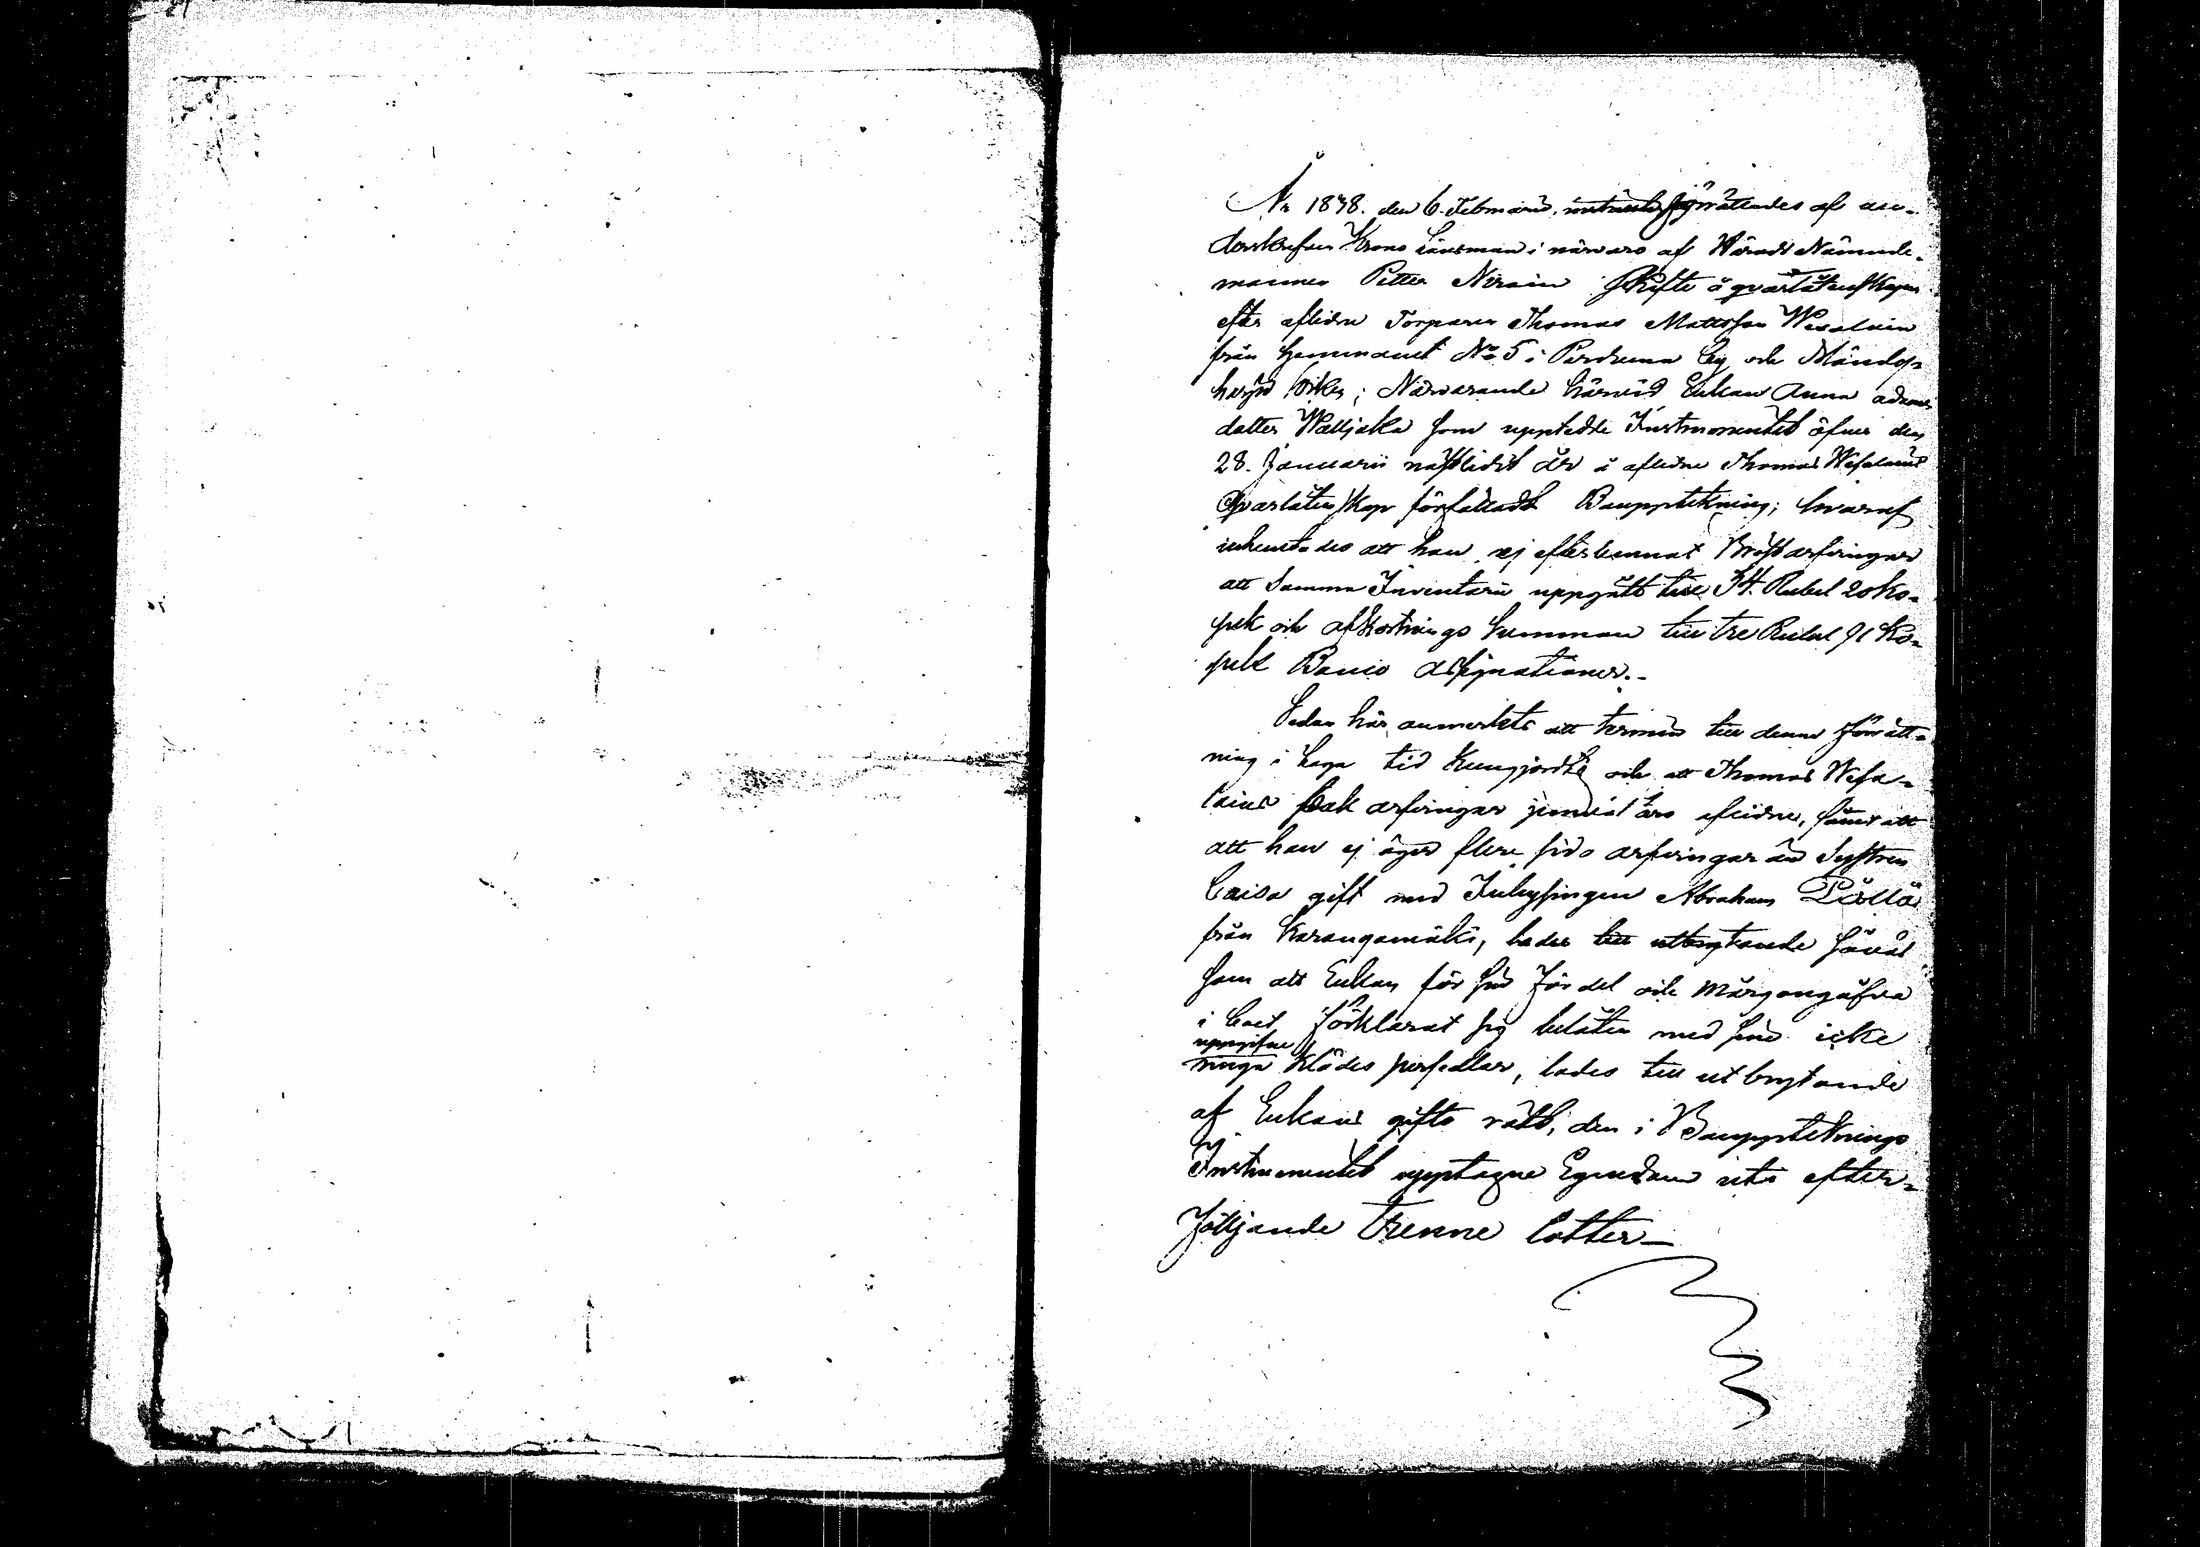 År 1838. den 6. Februarii, förrättades af un-
derskrefven Krono Länsman i närvaro af Härads Nämnde-
mannen Petter Niroin Skifte å qvarlåtenskapen
efter aflidne Torparen Thomas Mattsson Wesalain
från Hemmanet No 5 i Purduma by och Mändy-
harju Soken; Närvarande härvid Enkan Anna Adams
dotter Walljaka som uppteddte Instrumentet öfver den
28. Januarii nästlidit år å aflidne Thomas Wesalains
Qvarlåtenskap författadt Bouppteckning; hvaraf
inhemtades att han ej efterlemnat Bröstarfvingar
att Samma Inventarii uppgått till 34. Rubel 20 Ko-
pek och afkortnings Summan till tre Rubel 91 Ko-
pek Banco Assignationer.-
Sedan här anmerkts att termin till denna förrätt-
ning i laga tid Kungjordts och att Thomas Wesa-
lains bak arfvingar jemväl äro aflidne, samt att
att han ej äger flere sido arfvingar än Systren
Caisa gift med Inhysingen Abraham Pöllä
från Karangamäki, lades till utbrytande såväl
som att Enkan för sin Fördel och Mårgongåfva
i boet förklarat sig belåten med sine icke
uppgifne
ringa Klädes persedlar, lades till utbrytande
af Enkans gifto rätt, den i Boupptecknings
Instrumentet upptagne Egendom uti efter-
följande trenne lotter_